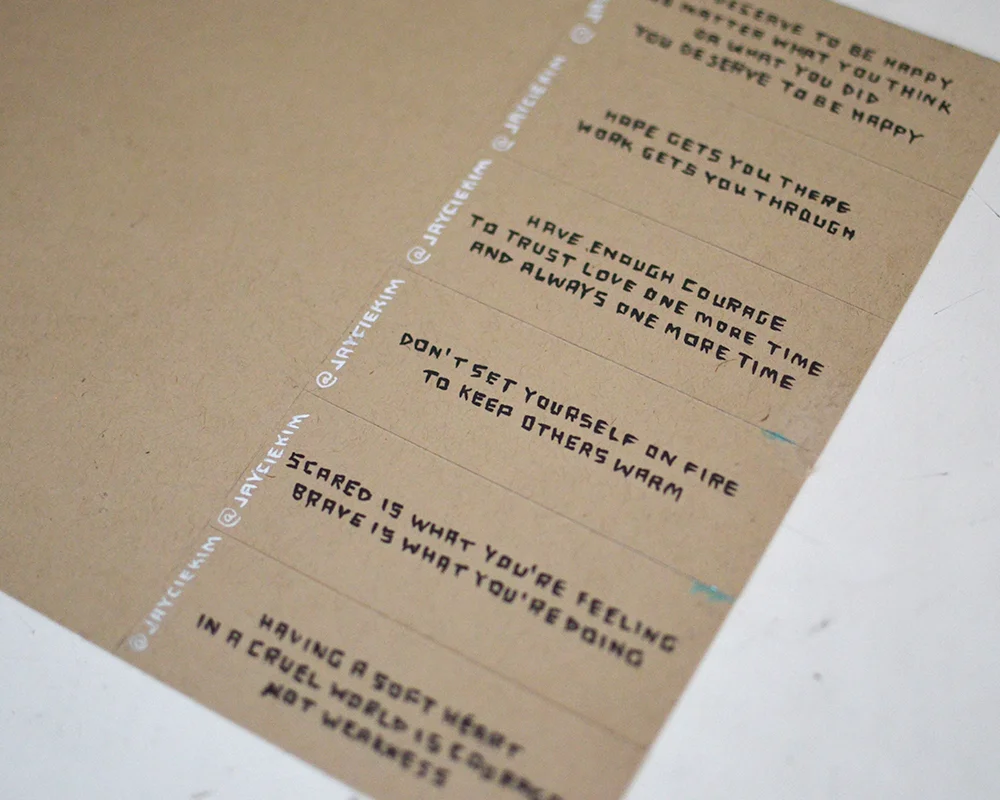 DESERVE TO BE HAPPY
MATTER WHAT YOU THINK
OR WHAT YOU DID
YOU DESERVE TO BE HAPPY
HOPE GETS YOU THERE
WORK GETS YOU THROUGH
HAVE ENOUGH COURAGE
TO TRUST LOVE ONE MORE TIME
AND ALWAYS ONE MORE TIME
DON'T SET YOURSELF ON FIRE
TO KEEP OTHERS WARM
SCARED IS WHAT YOU'RE FEELING
BRAVE IS WHAT YOU'RE DOING
HAVING A SOFT HEART
IN A CRUEL WORLD IS COURAGE
NOT WEAKNESS
@JAYCIEKIM
@JAYCIEKIM
@JAYCIEKIM
@JAYCIEKIM
@JAYCIEKIM